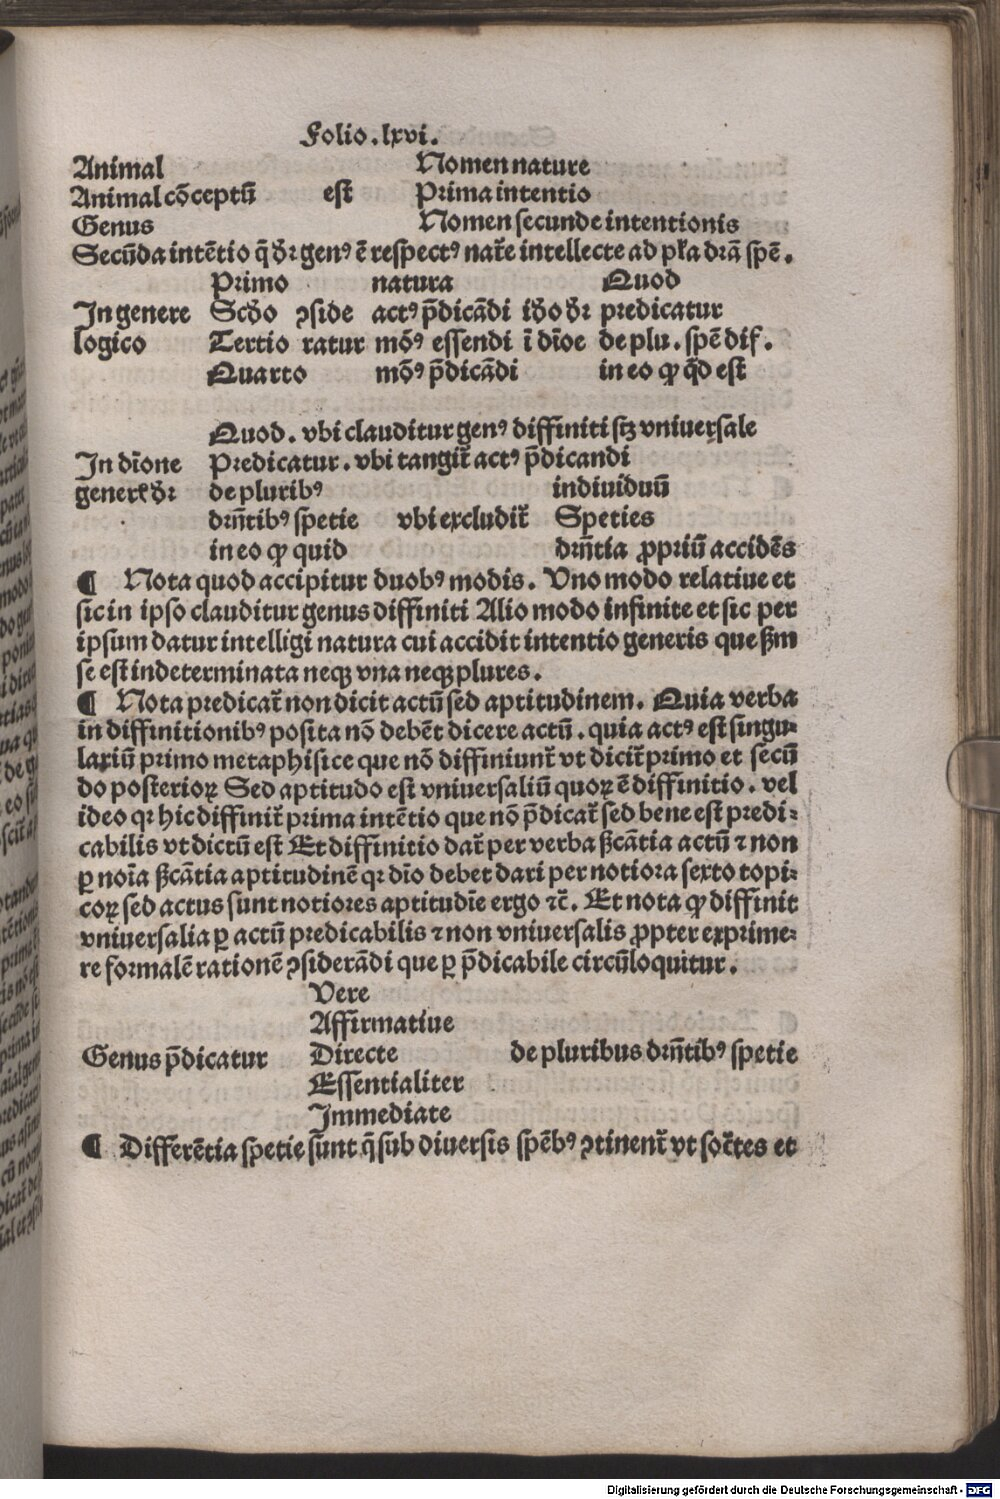 Folio.lxvi.
Animal Nomen nature
Animal cōceptū est Prima intentio
Genus Nomen secunde intentionis
Secūda intētio q̄ dꝛ genꝰ ē respectꝰ nat̄e intellecte ad drā spē.
Primo natura Quod
In genere Scd̄o ꝯside actꝰ p̄dicādi id̄o dꝛ predicatur
logico Tertio ratur mōꝰ essendi ī dīoe de plu. spē dif.
Quarto mōꝰ p̄dicādi in eo ꝙ qd̄ est
Quod. vbi clauditur genꝰ diffiniti sꝫ vniuersale
In dīone Predicatur. vbi tangit̄ actꝰ p̄dicandi
dꝛ de pluribꝰ indiuiduū
dr̄ntibꝰ spetie vbi excludit̄ Speties
in eo ꝙ quid dr̄ntia ꝓpriū accidēs
¶ Nota quod accipitur duobꝰ modis. Vno modo relatiue et
sic in ipso clauditur genus diffiniti Alio modo infinite et sic per
ipsum datur intelligi natura cui accidit intentio generis que ẜm
se est indeterminata neqꝫ vna neqꝫ plures.
¶ Nota predicat̄ non dicit actū sed aptitudinem. Quia verba
in diffinitionibꝰ posita nō debēt dicere actū. quia actꝰ est singu⸗
lariū primo metaphisice que nō diffiniunt̄ vt dicit̄ primo et secū
do posterioꝝ Sed aptitudo est vniuersaliū quoꝝ ē diffinitio. vel
ideo qꝛ hic diffinit̄ prima intētio que nō p̄dicat̄ sed bene est predi⸗
cabilis vt dictū est Et diffinitio dat̄ per verba ẜcātia actū ⁊ non
ꝑ noīa ẜcātia aptitudinē qꝛ dīo debet dari per notiora sexto topi⸗
coꝝ sed actus sunt notiores aptitudīe ergo ⁊c̄. Et nota ꝙ diffinit
vniuersalia ꝑ actū predicabilis ⁊ non vniuersalis ꝓpter exprime⸗
re formalē rationē ꝯsiderādi que ꝑ p̄dicabile circūloquitur.
Vere
Affirmatiue
Genus p̄dicatur Directe de pluribus dr̄ntibꝰ spetie
Essentialiter
Immediate
¶ Differētia spetie sunt q̄ sub diuersis spēbꝰ ꝯtinent̄ vt soc̄tes et
Digitalisierung gefördert durch die Deutsche Forschungsgemeinschaft - DFG